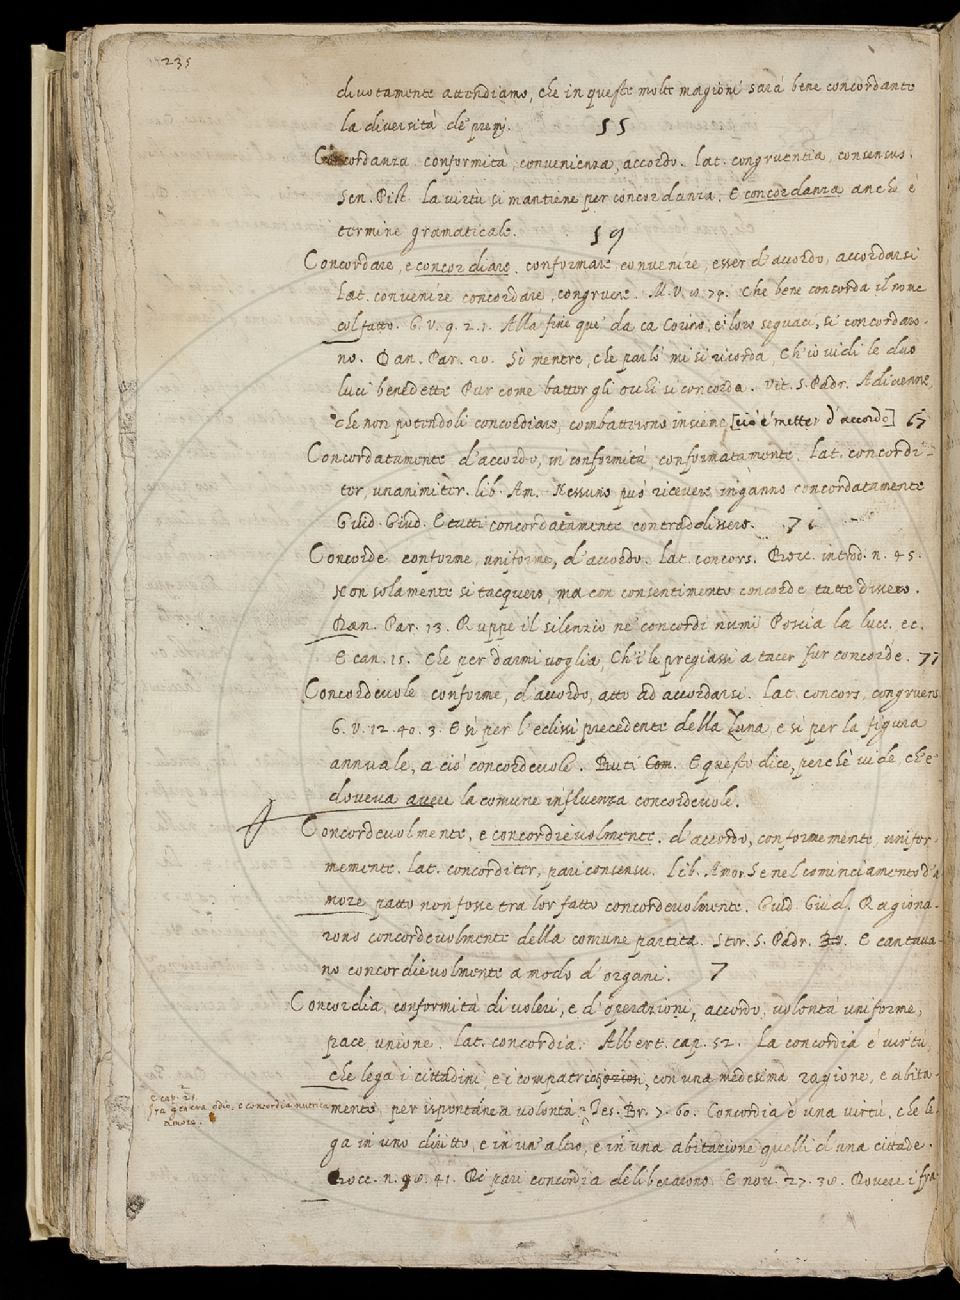 235
divotamente attendiamo, che in queste molte magioni sarà bene concordante
la diversità de' premj. 55
Concordanza conformità, convenienza, accordo. Lat. congruentia, consensus.
Sen. Pist. La virtù si mantiene per concordanza. E concordanza anche è
termine gramaticale. 59
Concordare, e concordiare. conformare, convenire, esser d'accordo, accordarsi
Lat. convenire concordare, congruere. M. V. Che bene concorda il nome
col fatto. G. V. 9. 2. 1. Alla fine que' da ca e loro seguaci, si concordaro-
no. Dan. Par. 20. Sì mentre, che parlò mi si ricorda Ch'io vidi le duo
luci benedette Pur come batter gli occhi si concorda. Vit. S. Padr. Adivenne,
che non potendoli concordiare, combatterono insieme [cioè metter d'accordo] 65
Concordatamente d'accordo, in conformità, conformatamente. Lat. concordi-
ter, unanimiter. lib. Am. Nessuno può ricevere inganno concordatamente
Guid. Giud. E tutti concordatamente contraddissero. 71
Concorde conforme, uniforme, d'accordo. Lat. concors. Bocc. introd. n. 45.
Non solamente si tacquero, ma con consentimento concorde tutte dissero.
Dan. Par. 13. Ruppe il silenzio ne' concordi numi Poscia la luce. ec.
E can. 15. Che per darmi voglia, Ch'i' le pregiassi a tacer fur concorde. 77
Concordevole conforme, d'accordo, atto ad accordarsi. Lat. concors, congruens
G. V. 12. 40. 3. E sì per l'eclissi precedente della Luna, e sì per la figura
annuale, a ciò concordevole. Buti Com. E questo dice, perchè vide, che
doveva avere la comune influenza concordevole.
Concordevolmente, e concordievolmente. d'accordo, conformemente, unifor-
memente. Lat. concorditer, pari consensu. Lib. Amor. Se nel cominciamento d'a
more patto non fosse tra lor fatto concordevolmente. Guid. Giud. Ragiona-
rono concordevolmente della comune partita. Stor. S. Padr. E cantava-
no concordievolmente a modo d'organi. 7
Concordia, conformità di voleri, e d'operazioni, accordo, volontà uniforme,
pace unione. Lat. concordia. Albert. cap. 52. La concordia è virtù,
che lega i cittadini, e i compatrioti, con una medesima ragione, e abita-
e cap. 2.
Ira genera odio, e concordia nutrica
amore.
mento, per ispontanea volontà. Tes. Br. 7. 60. Concordia è una virtù, che le
ga in uno diritto, e in un' altro, e in una abitazione quelli d'una cittade.
Bocc. n. 98. 41. Di pari concordia deliberarono. E nov. 27. 38. Dovere i fra